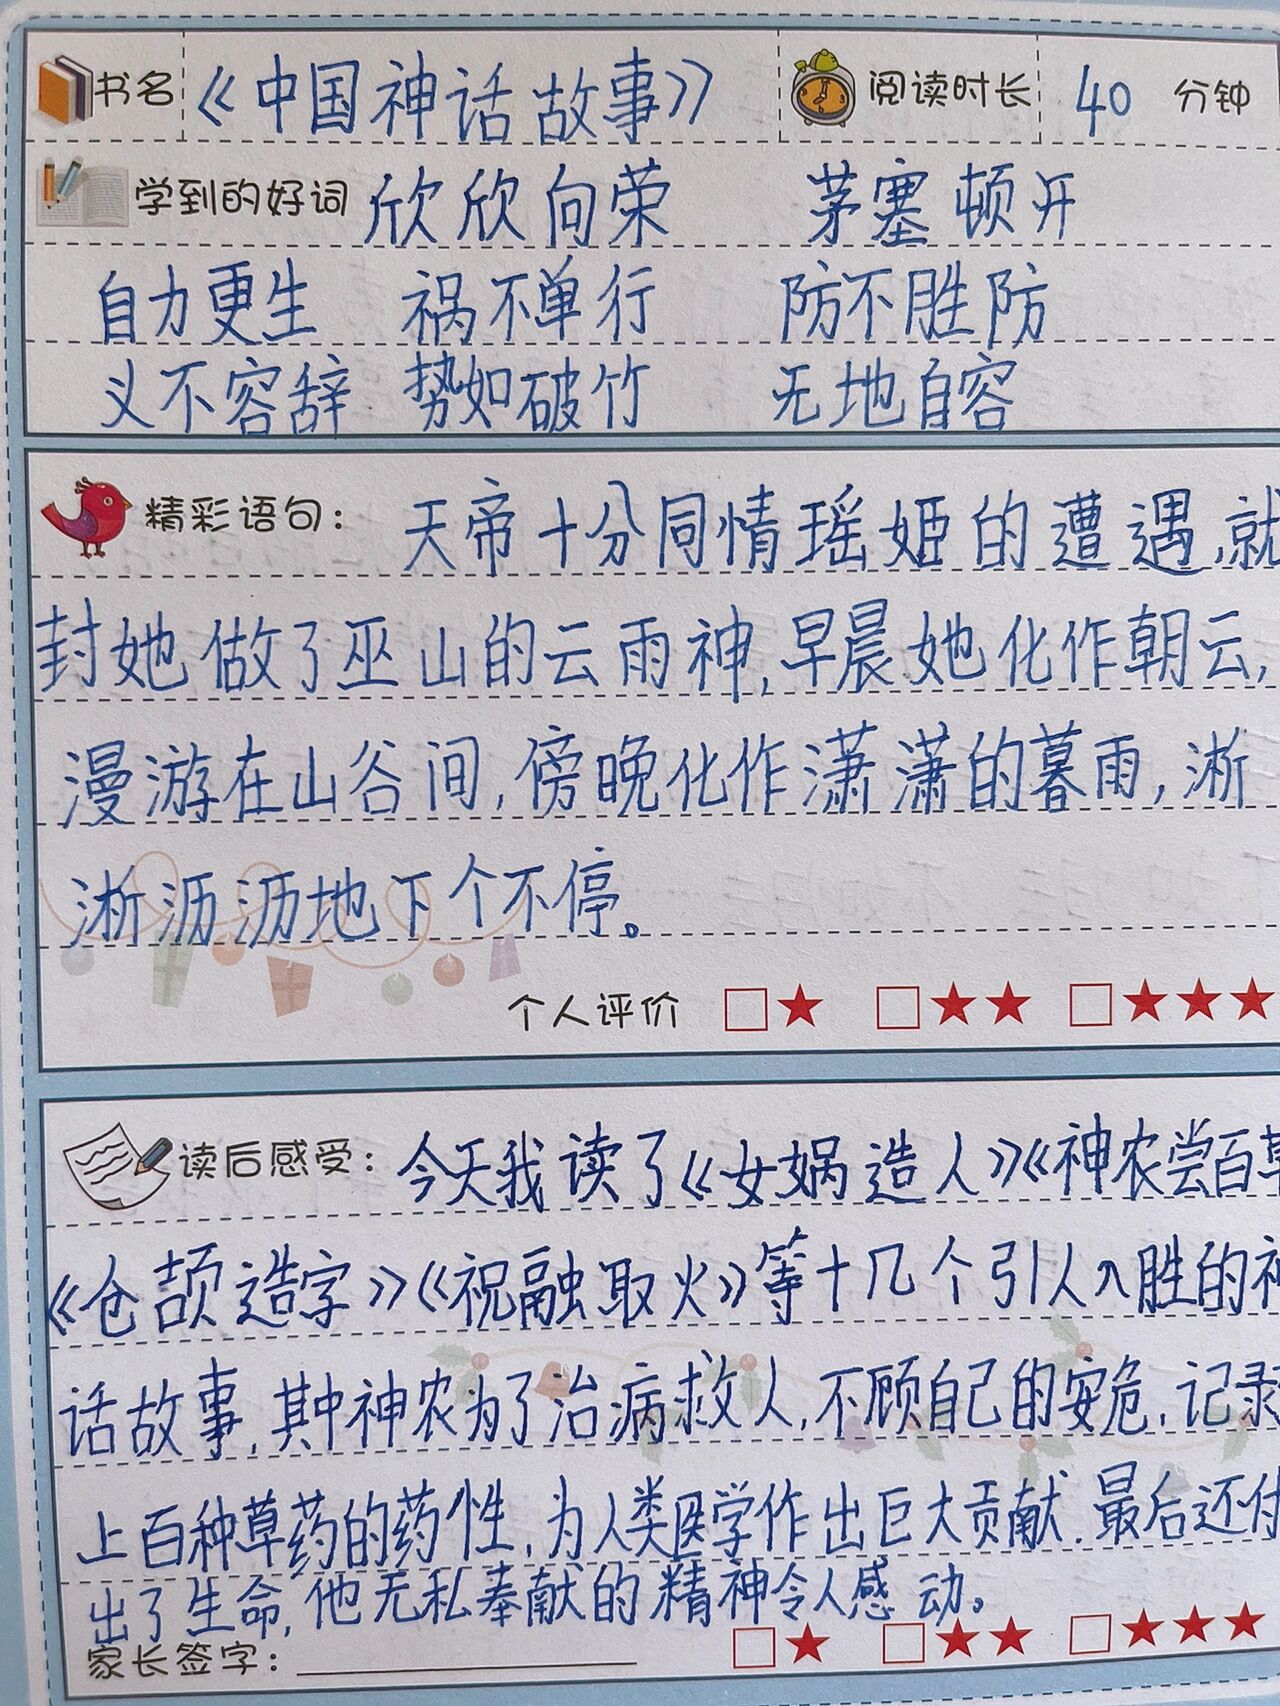 书名 《中国神话故事》 阅读时长 40 分钟
学到的好词 欣欣向荣 茅塞顿开
自力更生 祸不单行 防不胜防
义不容辞 势如破竹 无地自容
精彩语句: 天帝十分同情瑶姬的遭遇,就
封她做了巫山的云雨神,早晨她化作朝云,
漫游在山谷间,傍晚化作潇潇的暮雨,淅
淅沥沥地下个不停。
个人评价
读后感受: 今天我读了《女娲造人》《神农尝百草
《仓颉造字》《祝融取火》等十几个引人入胜的神
话故事,其中神农为了治病救人,不顾自己的安危,记录
上百种草药的药性,为人类医学作出巨大贡献.最后还付
出了生命,他无私奉献的精神令人感动。
家长签字: